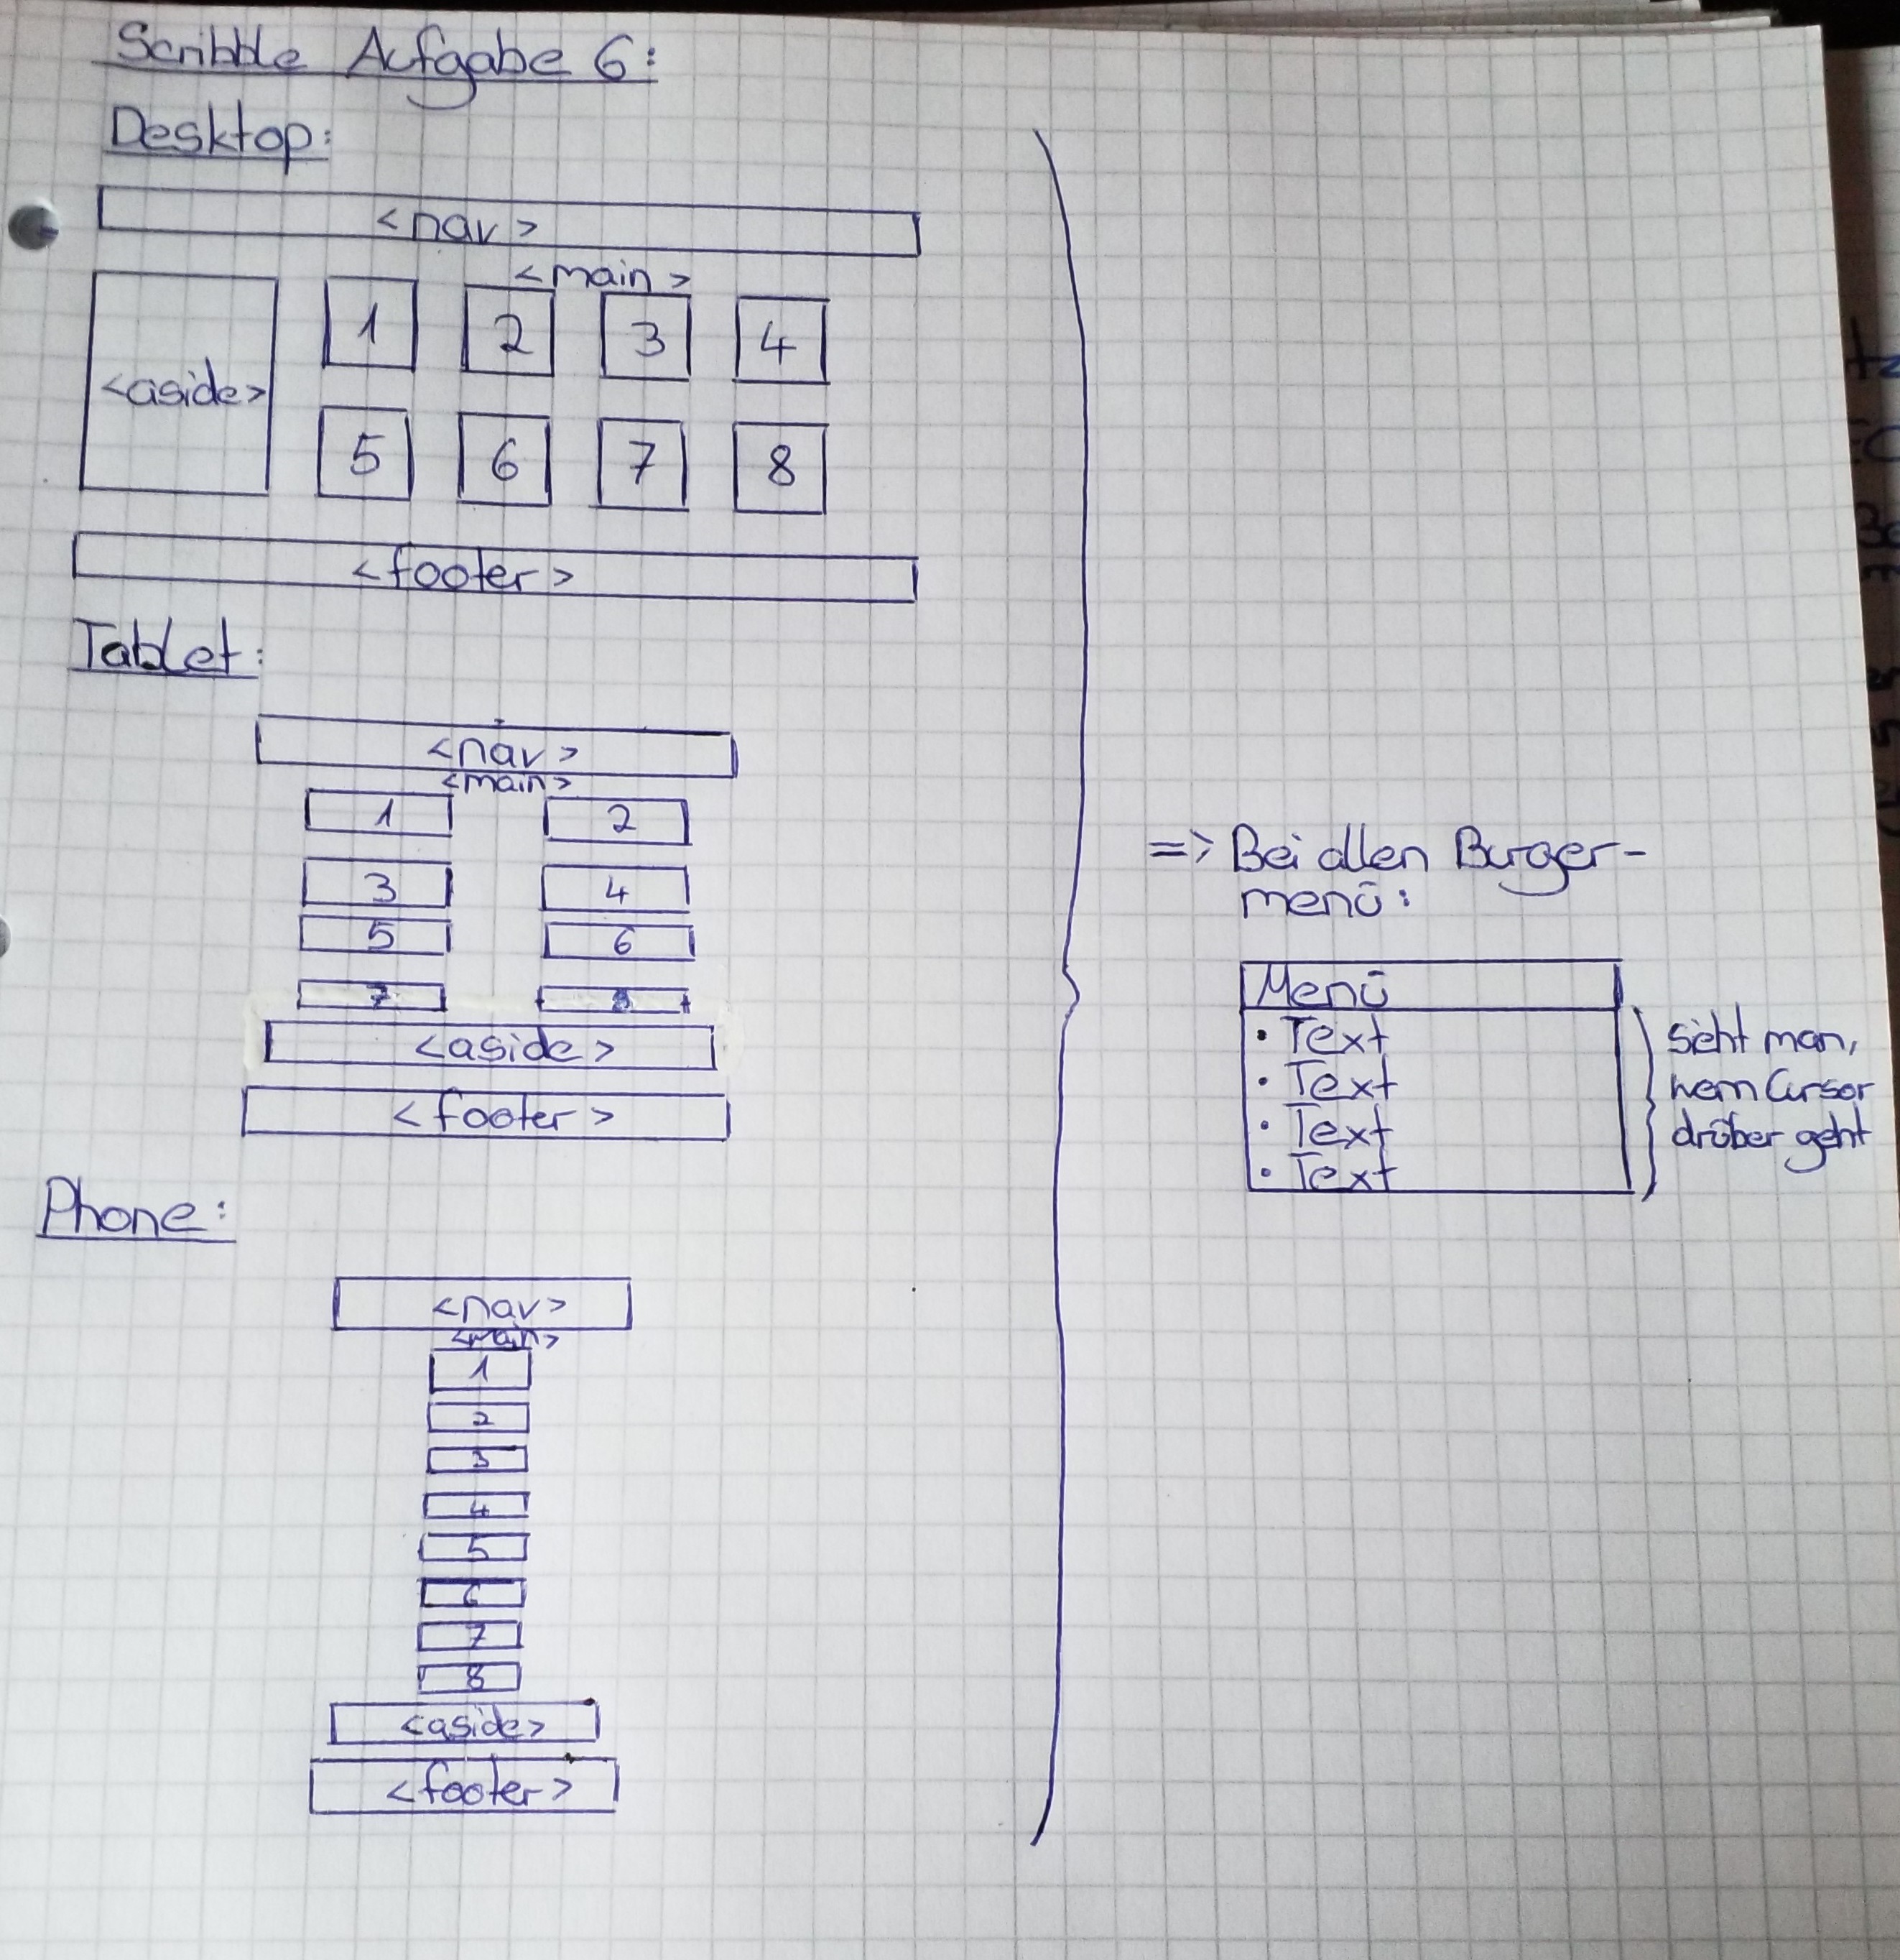 Scribble Aufgabe 6:
Desktop:
<nav>
<main>
1 2 3 4
<aside>
5 6 7 8
<footer>
Tablet:
<nav>
<main>
1 2
3 4
5 6
7 8
<aside>
<footer>
Phone:
<nav>
<main>
1
2
3
4
5
6
7
8
<aside>
<footer>
=> Bei allen Burger-
menü:
Menü
• Text
• Text
• Text
• Text
sieht man,
wenn Cursor
drüber geht